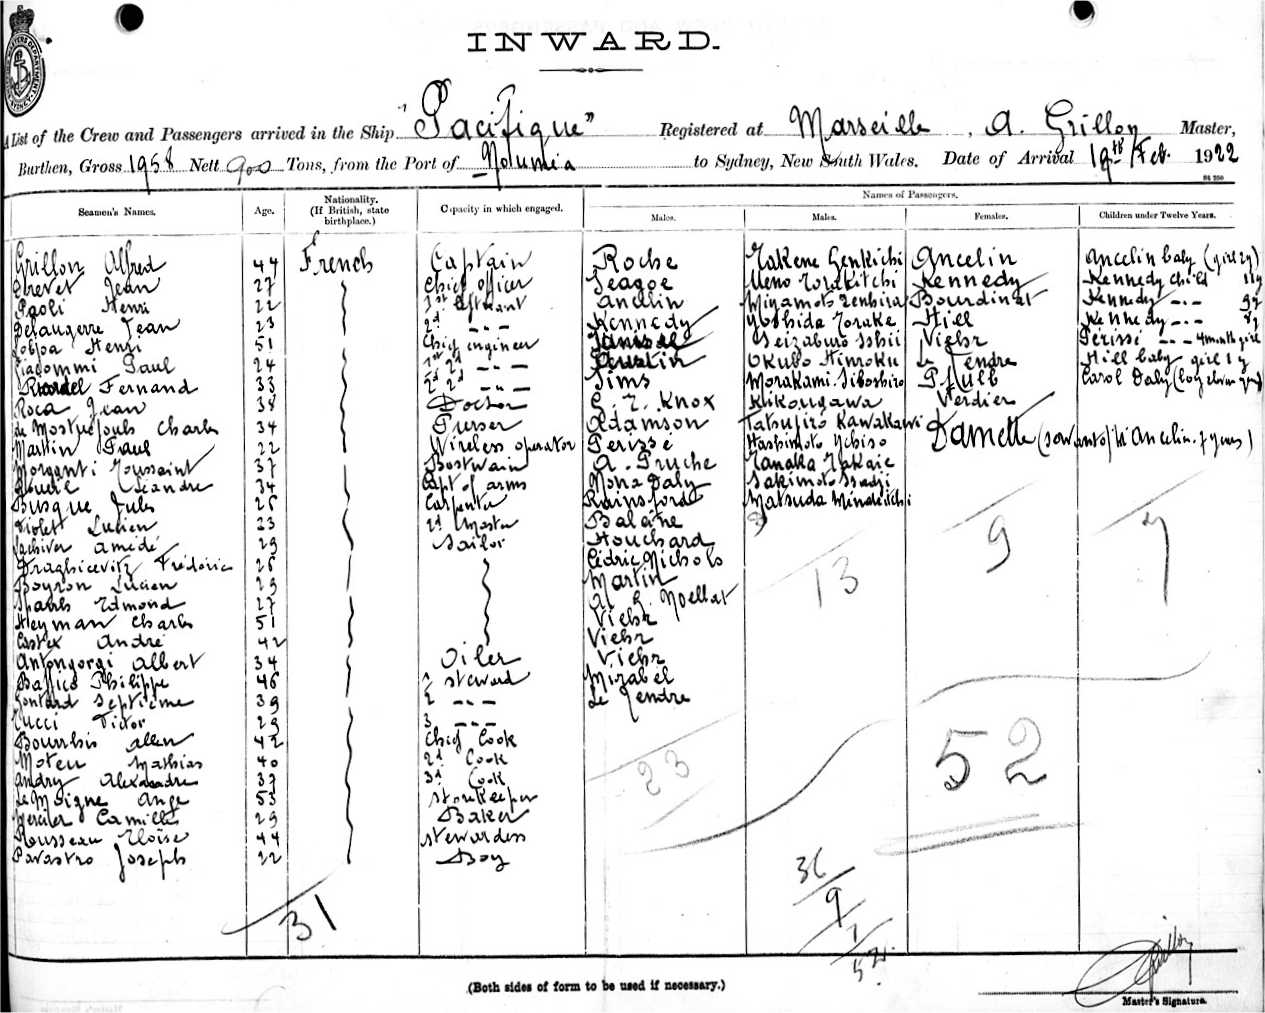 INWARD.
A List of the Crew and Passengers arrived in the Ship "Pacifique" Registered at Marseille, A. Grillon Master,
Burthen, Gross 1958 Nett 900 Tons, from the Port of Noumea to Sydney, New South Wales. Date of Arrival 19th Feb. 1922
Seamen's Names. Age. Nationality. (If British, state birthplace.) Capacity in which engaged. Names of Passengers.
Males. Males. Females. Children under Twelve Years.
Grillon Alfred 44 French Captain Roche Takene Genkichi Ancelin Ancelin baby (girl 2y)
Jean 27 Chief officer Ueno Torakitchi Kennedy Kennedy child 11y
Paoli Henri 22 1st Ancelin Miyamoto Bourdinat Kennedy -.- 9y
Delaugerre Jean 23 2d -.- Kennedy Yoshida Torake Hill Kennedy -.-
Henri 51 Chief engineer Seizaburo Ishii Perissé -.- 4 month girl
Giacommi Paul 24 -.- Austin Okubo Hinroku Le Tendre Hill baby girl 1 y
Fernand 33 -.- Sims Morakami Siboshiro Pfulb Carol Daly
Roca Jean 38 Doctor Knox Kikougawa Verdier
Charles 34 Purser Adamson Tatsujiro Kawakawi Damette (servant of Ancelin. 7 years)
Martin Paul 22 Wireless operator Perissé Hashimoto Ychiso
Morganti Toussaint 37 Bostwain A. Pruche Tanaka Takaie
Léandre 34 Capt of arms Mona Daly Sakimoto
Busque Jules 26 Carpenter Rainsford Matsuda
Violet Lucien 23 2d Master
Amédé 29 Sailor Houchard
Draghicevitz Frédéric 26 Cédric Nichols
Boyron Lucien 29 Martin
Edmond 27 Noellat
Heyman Charles 51 Viehr
Estex André 42 Viehr
Antongorgi Albert 34 Oiler Viehr
Philippe 46 1 steward Mirabel
Gontard Septieme 39 2 -.- Le Tendre
Tucci Victor 29 3 -.-
Bourhis Allen 42 Chief Cook
Mateu Mathias 40 2d Cook
Andry Alexandre 37 3d Cook
Le Moigne Ange 53 Storekeeper
Mercier Camille 29 Baker
Rousseau Eloïse 44 stewardess
Pavastro Joseph 22 Boy
31
23
13
9
7
52
36
9
7
52.
(Both sides of form to be used if necessary.)
Grillon
Master's Signature.